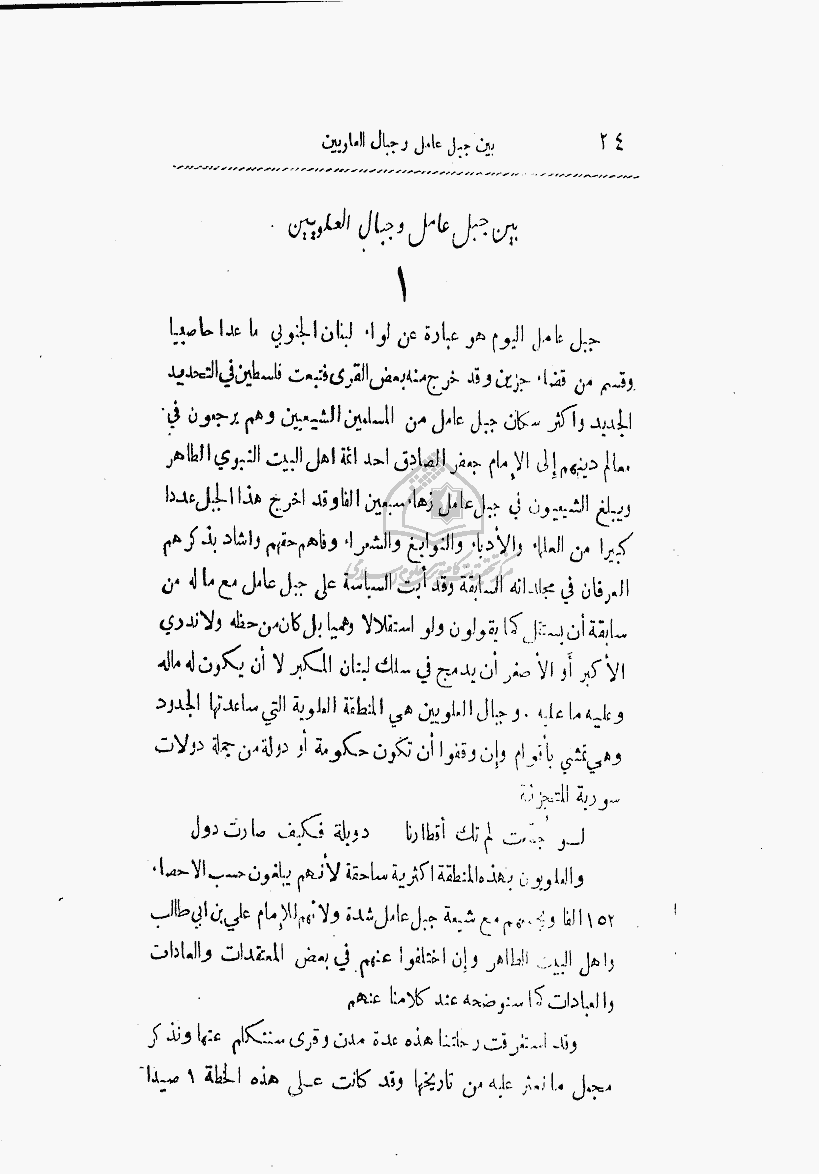 ٢٤ بين جبل عامل وجبال العلويين
بين جبل عامل وجبال العلويين .
١
جبل عامل اليوم هو عبارة عن لواء لبنان الجنوبي ما عدا حاصبيا
وقسم من قضاء جزين وقد خرج منه بعض القرى فتبعت فلسطين في التحديد
الجديد وأكثر سكان جبل عامل من المسلمين الشيعيين وهم يرجعون في
معالم دينهم إلى الإمام جعفر الصادق احد ائمة اهل البيت النبوي الطاهر
ويبلغ الشيعيون في جبل عامل زهاء سبعين الفا وقد اخرج هذا الجبل عددا
كبيرا من العلماء والأدباء والنوابغ والشعراء وفاهم حقهم واشاد بذكرهم
العرفان في مجلداته السابقة وقد أبت السياسة على جبل عامل مع ماله من
سابقة أن يستقل كما يقولون ولو استقلالا وهميا بل كان من حظه ولا ندري
الأكبر أو الأصغر أن يدمج في سلك لبنان المكبر لا أن يكون له ماله
وعليه ما عليه . وجبال العلويين هي المنطقة العلوية التي ساعدتها الجدود
وهي تمشي بأقوام وإن وقفوا أن تكون حكومة أو دولة من جملة دولات
سورية المتجزئة
لو جمعت لم تك أقطارنا دويلة فكيف صارت دول
والعلويون بهذه المنطقة اكثرية ساحقة لأنهم يبلغون حسب الاحصاء
١٥٢ الفا ويجمعهم مع شيعة جبل عامل شدة ولائهم للإمام علي بن ابي طالب
واهل البيت الطاهر وإن اختلفوا عنهم في بعض المعتقدات والعادات
والعبادات كما سنوضحه عند كلامنا عنهم
وقد استغرقت رحلتنا هذه عدة مدن وقرى سنتكلم عنها ونذكر
مجمل ما نعثر عليه من تاريخها وقد كانت على هذه الخطة ١ صيدا